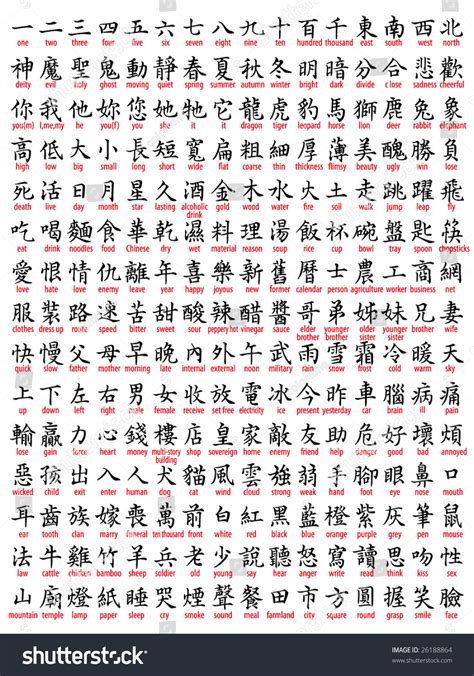 一 二 三 四 五 六 七 八 九 十 百 千 東 南 西 北
one two three four five six seven eight nine ten hundred thousand east south west north
神 魔 聖 鬼 動 靜 春 夏 秋 冬 明 暗 分 合 悲 歡
deity evil holy ghost moving quiet spring summer autumn winter bright dark sadness cheerful
你 我 他 她 您 她 牠 它 龍 虎 豹 馬 獅 鹿 兔 象
you(m) I,me,my he you(f) you she it it dragon tiger leopard horse lion deer rabbit elephant
高 低 大 小 長 短 寬 扁 粗 細 厚 薄 美 醜 勝 負
high low big small long short wide flat coarse thin thickness flimsy beauty ugly win lose
死 活 日 月 星 久 酒 金 木 水 火 土 走 跳 躍 飛
death live day month star lasting alcoholic drink gold wood water fire soil walk jump leap fly
吃 喝 麵 食 華 乾 濕 料 理 湯 飯 杯 碗 盤 匙 筷
eat drink noodles food Chinese dry wet material reason soup rice cup bowl tray spoon chopsticks
愛 恨 情 仇 離 年 喜 樂 新 舊 曆 士 農 工 商 網
love hate love enemy leave year happy joyous new former calendar person agriculture worker business net
服 裝 路 速 苦 甜 酸 辣 醋 醬 哥 弟 姊 妹 兄 妻
clothes dress up route speed bitter sweet sour peppery hot vinegar sauce elder brother younger brother elder sister younger sister brother wife
快 慢 父 母 早 晚 內 外 午 武 雨 雪 霜 冷 暖 天
quick slow father mother morning late internal external noon military rain snow frost cold warm sky
上 下 左 右 男 女 收 放 電 冰 今 昨 車 腦 病 痛
up down left right male female receive set free electricity ice present yesterday car brain ill pain
輸 贏 力 心 錢 樓 店 皇 家 敵 友 助 危 好 壞 煩
lose gain force heart money multi-story building shop sovereign home enemy friend help danger good bad annoyed
惡 孩 出 入 人 犬 貓 風 雲 強 弱 手 腳 眼 鼻 口
wicked child exit enter human dog cat wind cloud strong weak hand foot eye nose mouth
耳 齒 族 嫁 喪 萬 前 白 紅 黑 藍 橙 紫 灰 筆 鼠
ear tooth clan marry funeral ten thousand front white red black blue orange purple grey pen mouse
法 牛 雞 竹 羊 兵 老 少 說 聽 怒 寫 讀 思 吻 性
law cattle chicken bamboo sheep soldier old young say hear angry write read think kiss sex
山 廟 燈 紙 睡 哭 煙 聲 餐 田 市 方 圓 握 笑 臉
mountain temple lamp paper sleep cry smoke sound meal farmland city square round grasp smile face
shutterstock
IMAGE ID: 26188864
www.shutterstock.com